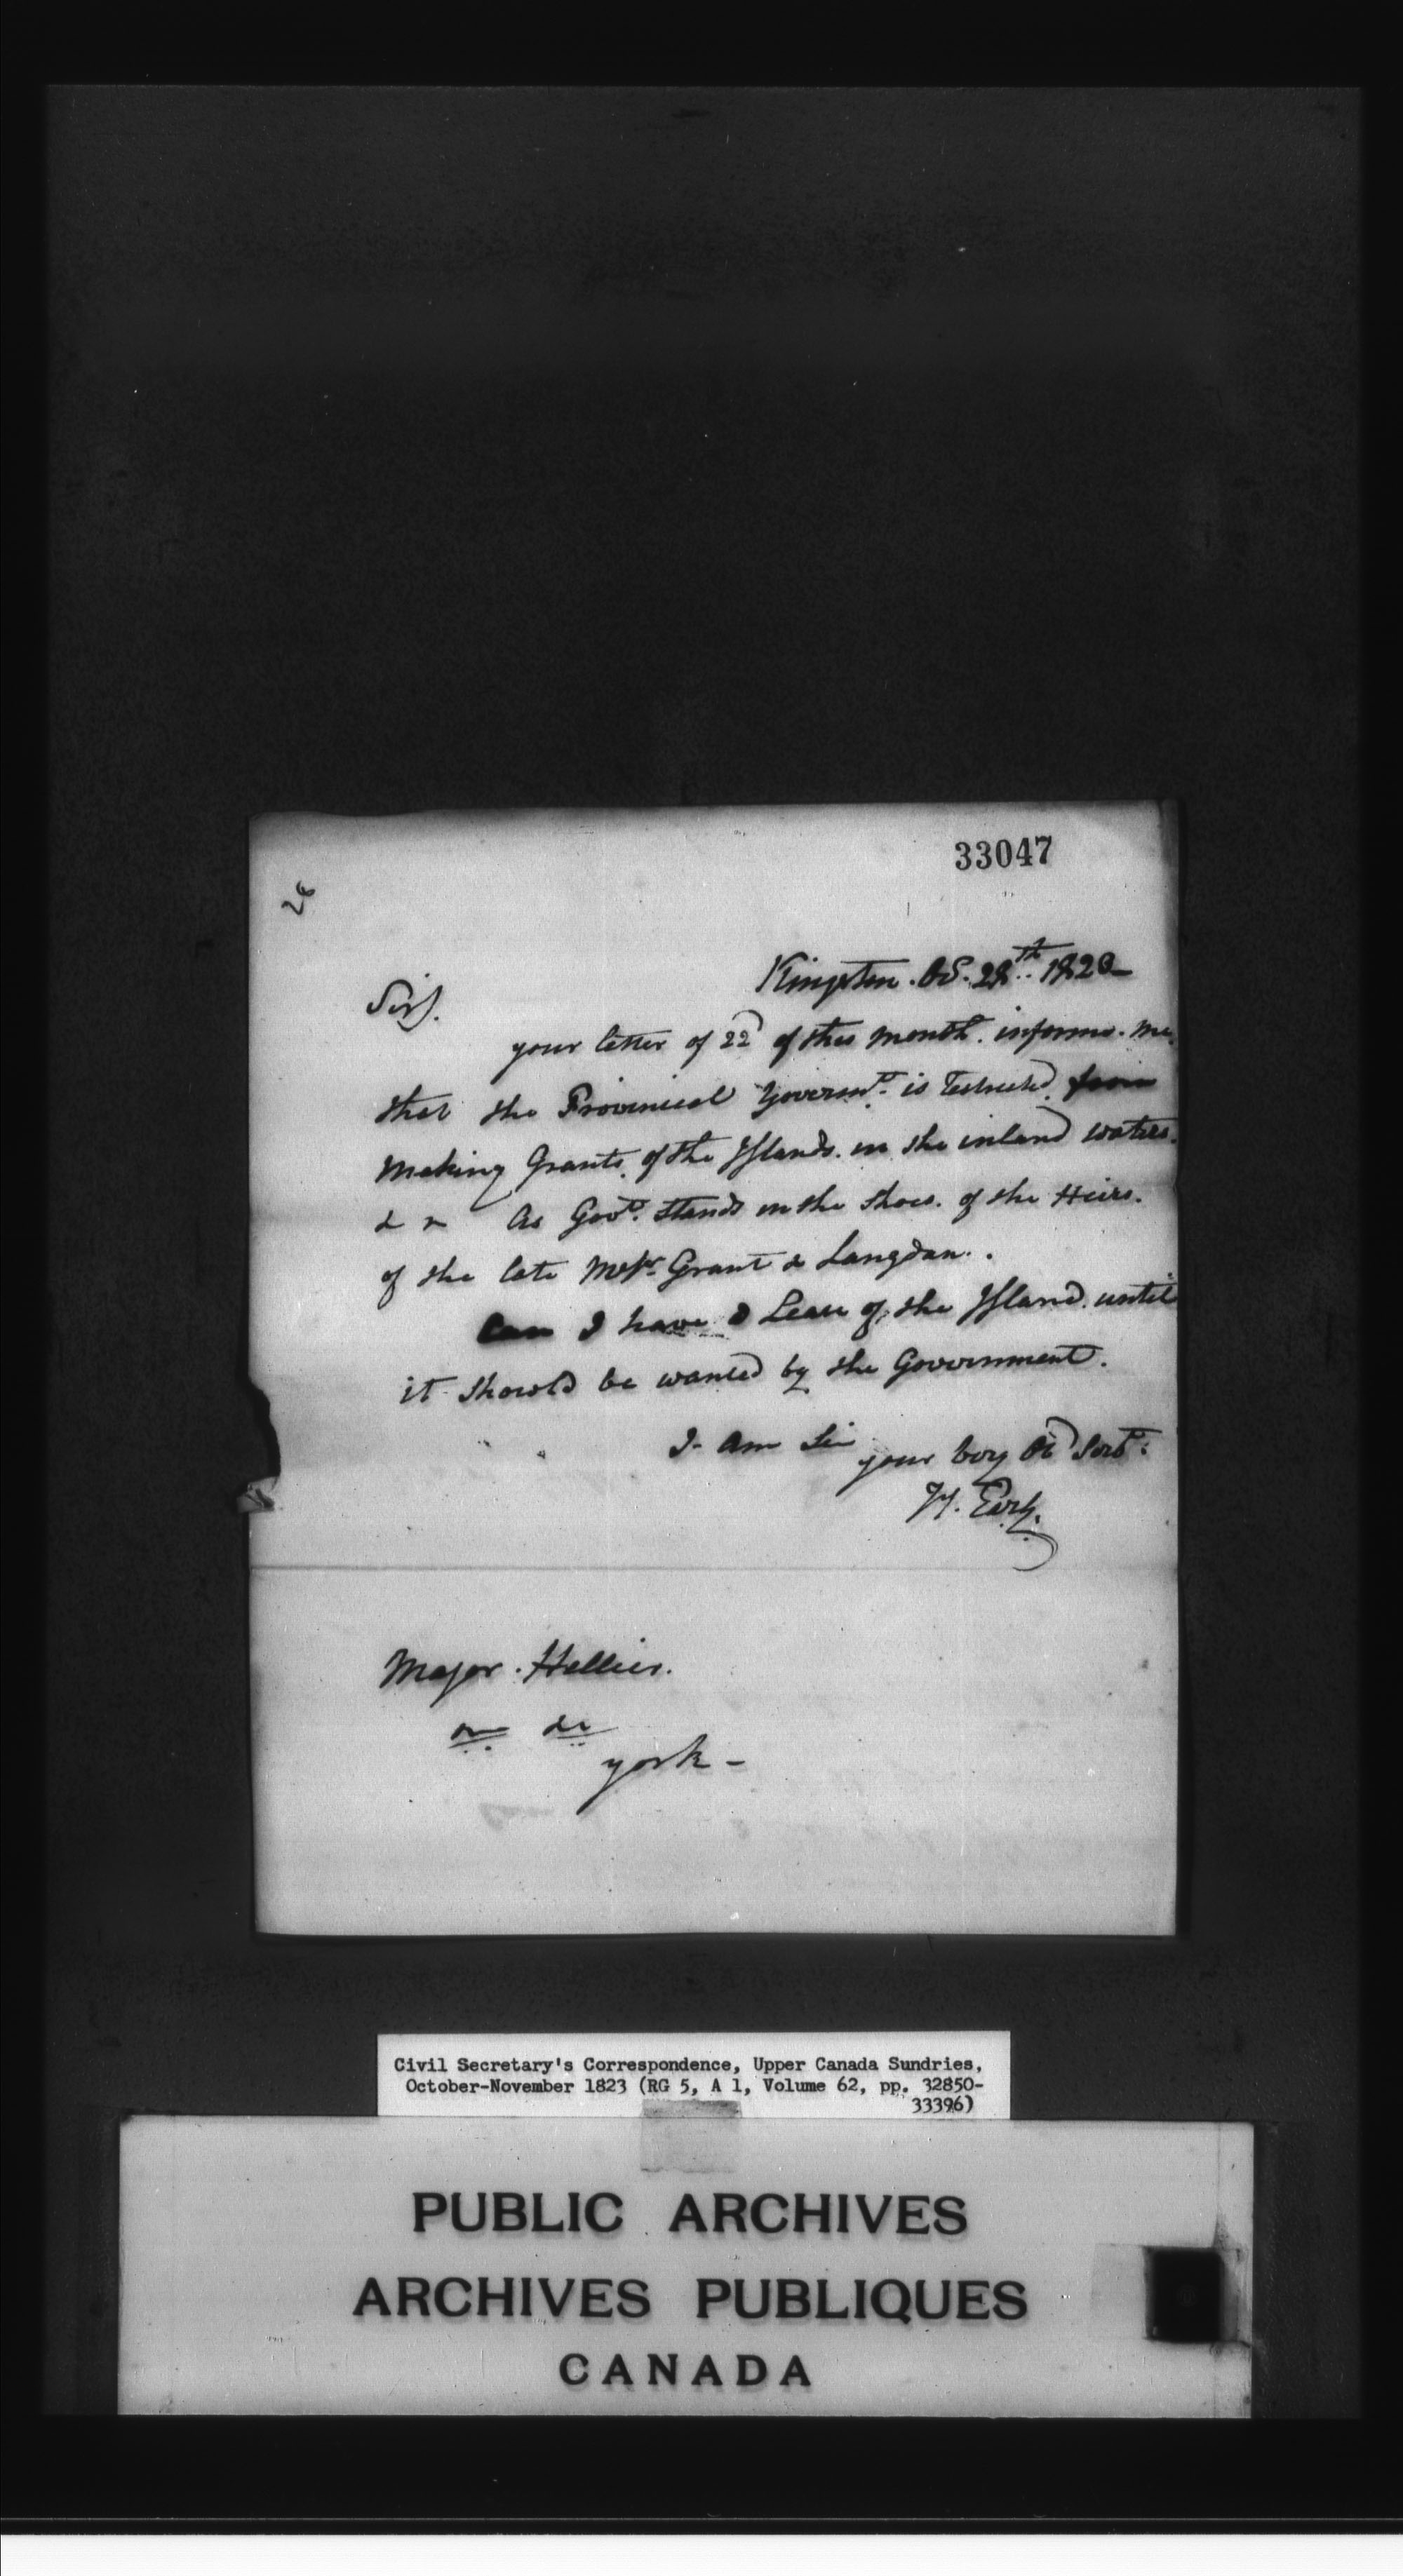 33047
28
Kingston. Oct. 28th. 1823
Sir/.
your letter of 22d of this month. informs. me.
that the Provincial Governmt. is restricted from
making Grants. of the Islands. in the inland waters.
& & As Govt. stands in the shoes. of the Heirs.
of the late Messrs. Grant & Langdan..
Can I have a Lease of the Island. until
it should be wanted by the Government.
I am Sir
your very Obt Servt.
H. Earl.
Major. Hillier.
&c &c
york -
Civil Secretary's Correspondence, Upper Canada Sundries,
October-November 1823 (RG 5, A 1, Volume 62, pp. 32850-
33396)
PUBLIC ARCHIVES
ARCHIVES PUBLIQUES
CANADA